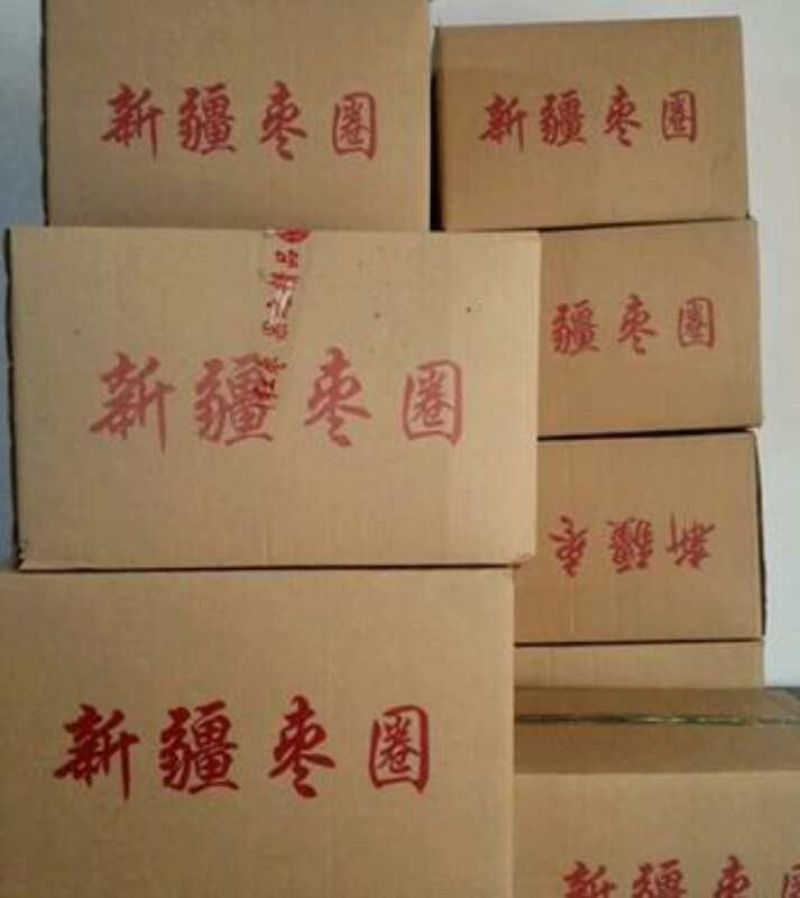 新疆枣圈
新疆枣圈
新疆枣圈
疆枣圈
新疆枣
新疆枣圈
新疆枣